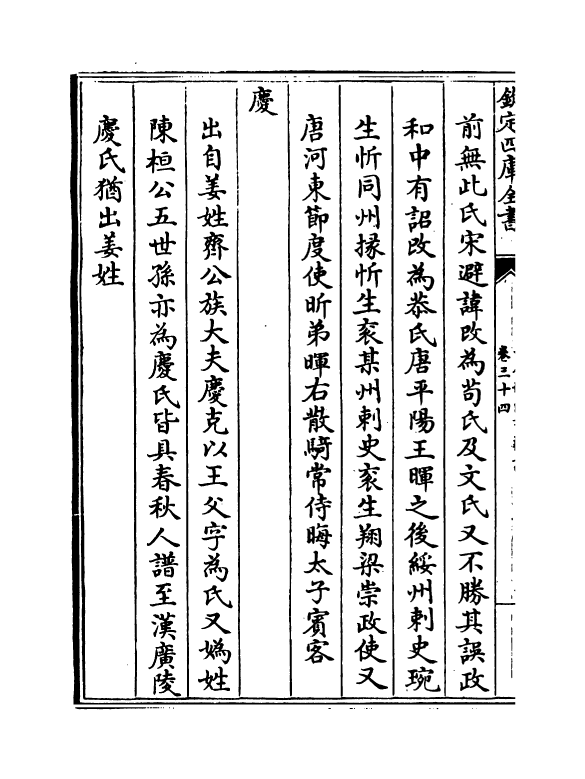 欽定四庫全書
卷三十四
前無此氏宋避諱改為苟氏及文氏又不勝其誤政
和中有詔改為恭氏唐平陽王暉之後綏州刺史琬
生忻同州掾忻生衮某州刺史衮生翔梁崇政使又
唐河東節度使昕弟暉右散騎常侍晦太子賓客
慶
出自姜姓齊公族大夫慶克以王父字為氏又媯姓
陳桓公五世孫亦為慶氏皆具春秋人譜至漢廣陵
慶氏猶出姜姓